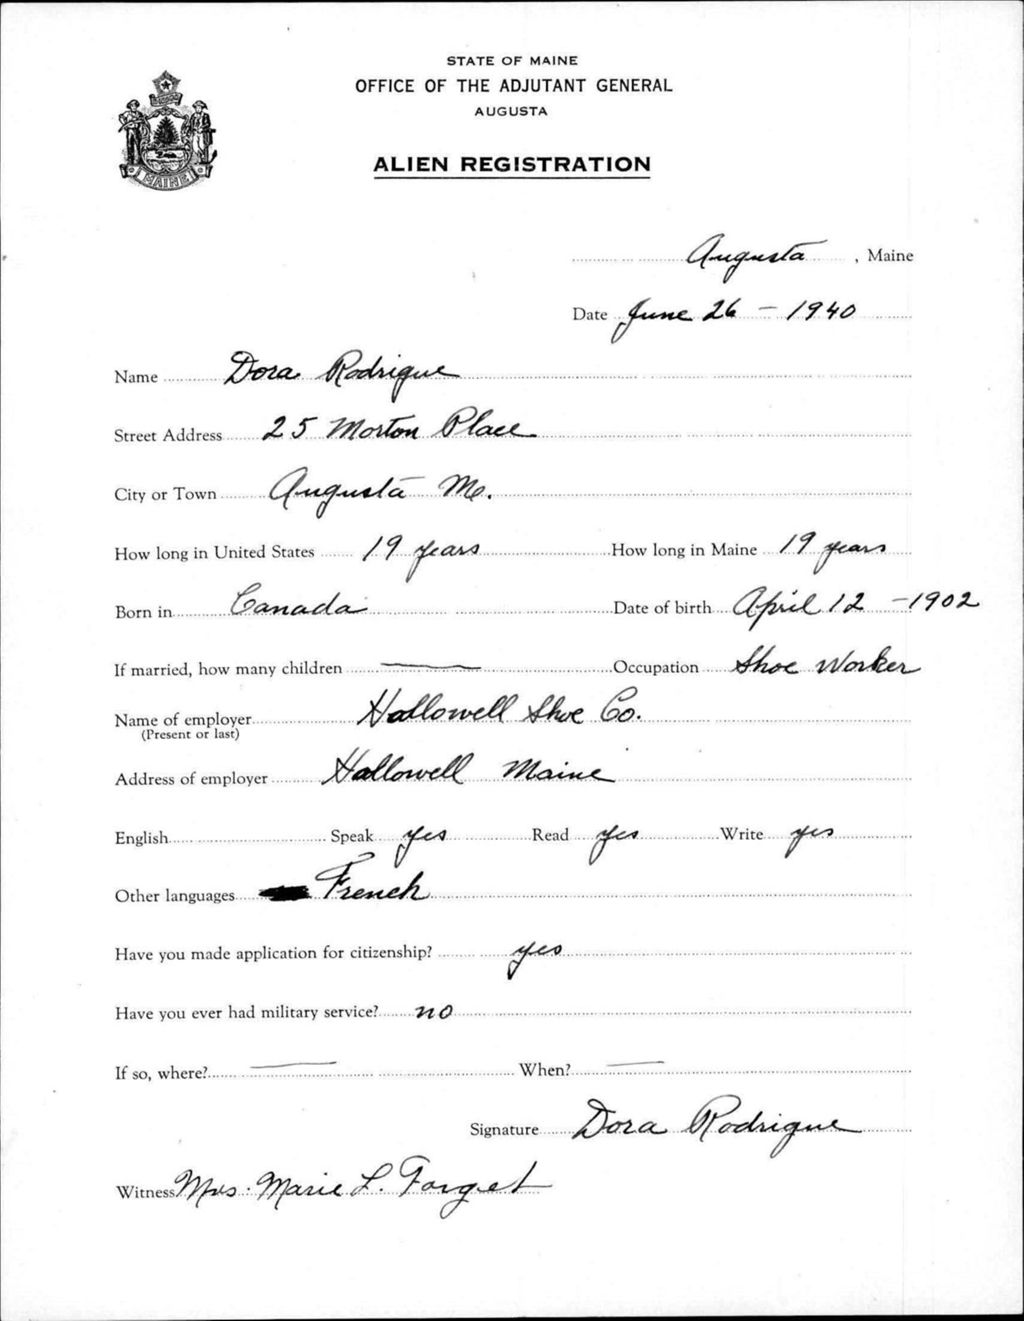 STATE OF MAINE
OFFICE OF THE ADJUTANT GENERAL
AUGUSTA
ALIEN REGISTRATION
MAINE
Augusta, Maine
Date June 26 - 1940
Name Dora Rodrigue
Street Address 25 Morton Place
City or Town Augusta Me.
How long in United States 19 years How long in Maine 19 years
Born in Canada Date of birth April 12 - 1902
If married, how many children — Occupation Shoe Worker
Name of employer Hallowell Shoe Co.
(Present or last)
Address of employer Hallowell Maine
English Speak yes Read yes Write yes
Other languages French
Have you made application for citizenship? yes
Have you ever had military service? no
If so, where? — When? —
Signature Dora Rodrigue
Witness Mrs. Marie L. Forget